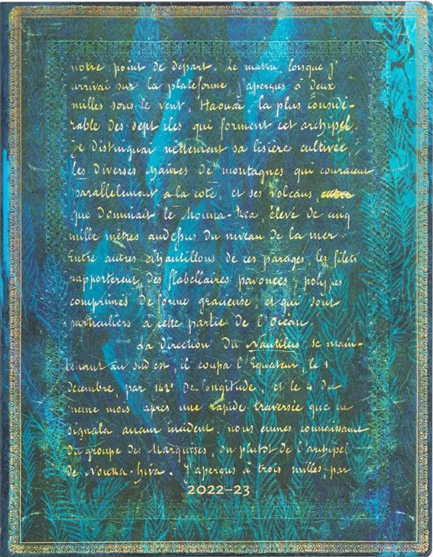 notre point de départ. Le matin lorsque j'
arrivai sur la plateforme j'aperçus à deux
milles sous le vent, Haouaï, la plus considé-
rable des sept îles qui forment cet archipel.
Je distinguai nettement sa lisière cultivée
les diverses chaînes de montagnes qui couraient
parallèlement à la côte, et ses volcans,
que dominait le Mouna-Rea, élevé de cinq
mille mètres audessus du niveau de la mer.
Entre autres échantillons de ces parages, les filets
rapportèrent des flabellaires pavonées, polypes
comprimés de forme gracieuse et qui sont
particuliers à cette partie de l'Océan.
La direction du Nautilus se main-
tenait au sud est, il coupa l'Équateur, le 1
décembre, par 142° de longitude, et le 4 du
même mois, après une rapide traversée que ne
signala aucun incident, nous eûmes connaissance
du groupe des Marquises, ou plutôt de l'archipel
de Nouka-hiva. J'aperçus à trois milles, par
2022–23